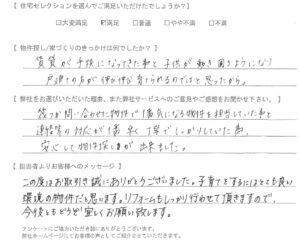 【 住宅セレクションを選んでご満足いただけたでしょうか？ 】
□大変満足 ☑満足 □普通 □やや不満 □不満
【 物件探し/家づくりのきっかけは何でしたか？ 】
賃貸が手狭になってきた事と子供が動き回るようになり
戸建ての方が伸び伸び育てられるのではと思ったから。
【 弊社をお選びいただいた理由、また弊社サービスへのご意見やご感想をお聞かせ下さい。 】
幾つか問い合わせた物件で1番気になる物件を担当していた事と
連絡等の対応が1番早く丁寧でしっかりしていた事。
安心して物件探しが出来ました。
【 担当者よりお客様へのメッセージ 】
この度はお取引き誠にありがとうございました。子育てをするにはとても良い
環境の物件だと思います。リフォームもしっかり行わせて頂きますので、
今後もどうぞ宜しくお願い致します。
アンケートにご協力いただき誠にありがとうございます。
弊社ホームページにてお客様の声としてご紹介させていただきます。